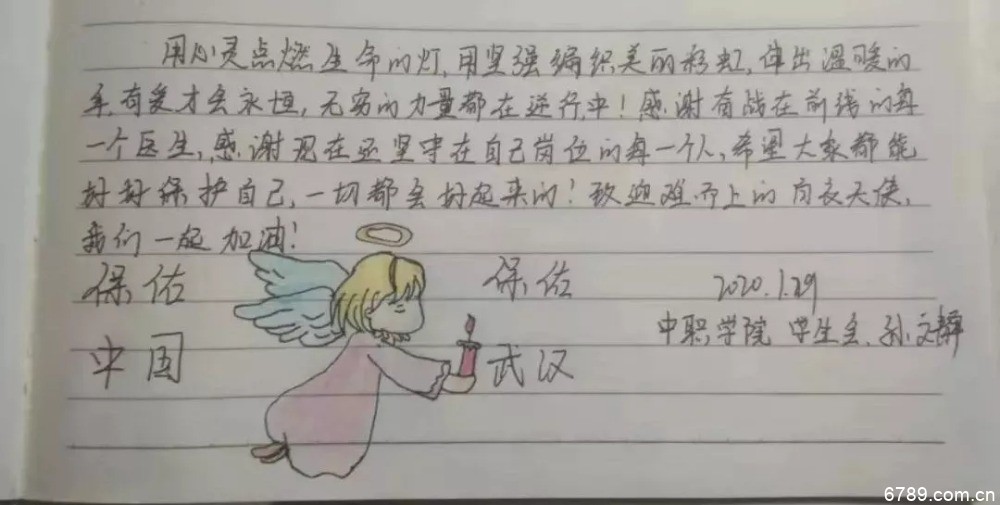 用心灵点燃生命的灯,用坚强编织美丽彩虹,伸出温暖的
手,有爱才会永恒,无穷的力量都在逆行中!感谢奋战在前线的每
一个医生,感谢现在还坚守在自己岗位的每一个人,希望大家都能
好好保护自己,一切都会好起来的!致迎难而上的白衣天使,
我们一起加油!
保佑 保佑 2020.1.29
中职学院 学生会.孙文静
中国 武汉
6789.com.cn